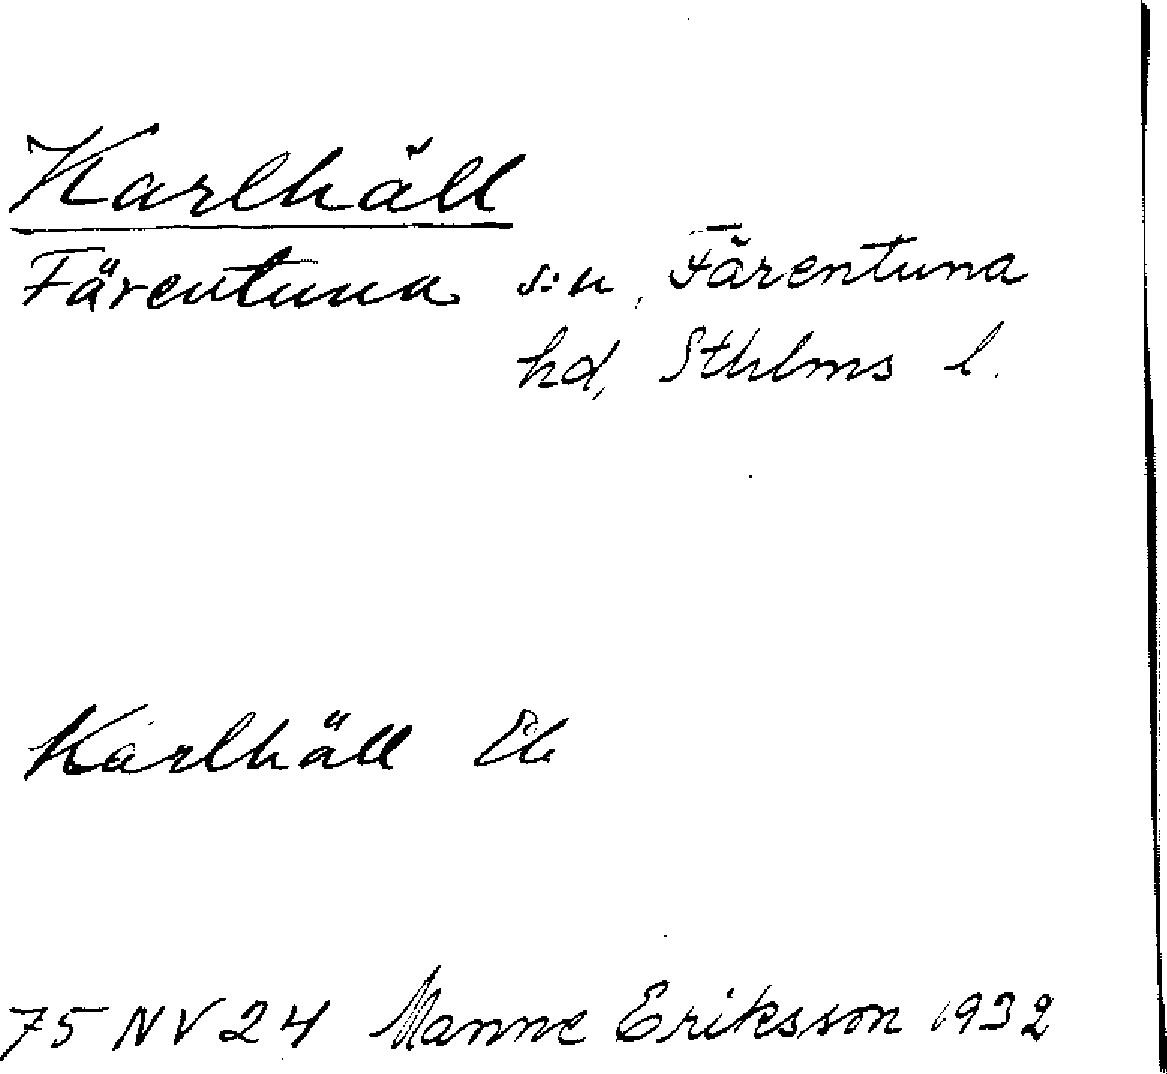 Karlhäll
Färentuna s:n, Färentuna
hd, Sthlms l.
Karlhäll Ek
75 NV 24 Manne Eriksson 1932